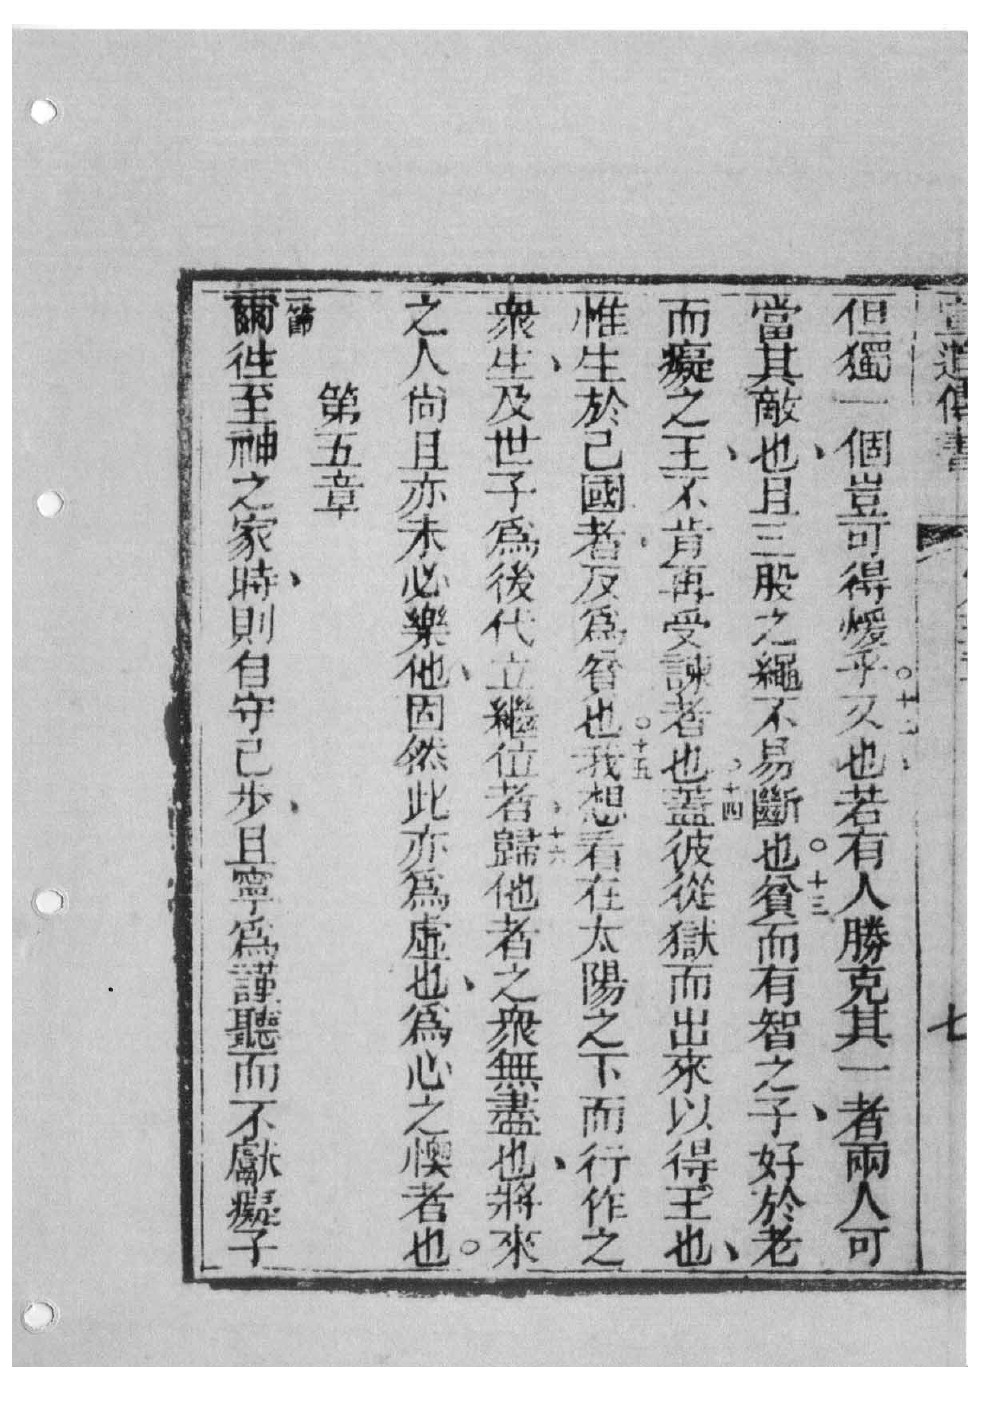 但獨一個豈可得煖乎又也若有人勝克其一者兩人可
當其敵也且三股之繩不易斷也○十三貧而有智之子好於老
而癡之王不肯再受諫者也○十四蓋彼從獄而出來以得王也
惟生於己國者反爲貧也○十五我想看在太陽之下而行作之
衆生及世子爲後代立繼位者十六歸他者之衆無盡也將來
之人尚且亦未必樂他固然此亦爲虛也爲心之懊者也○
第五章
一節
爾徃至神之家時則自守己步且寧爲謹聽而不獻癡子
七